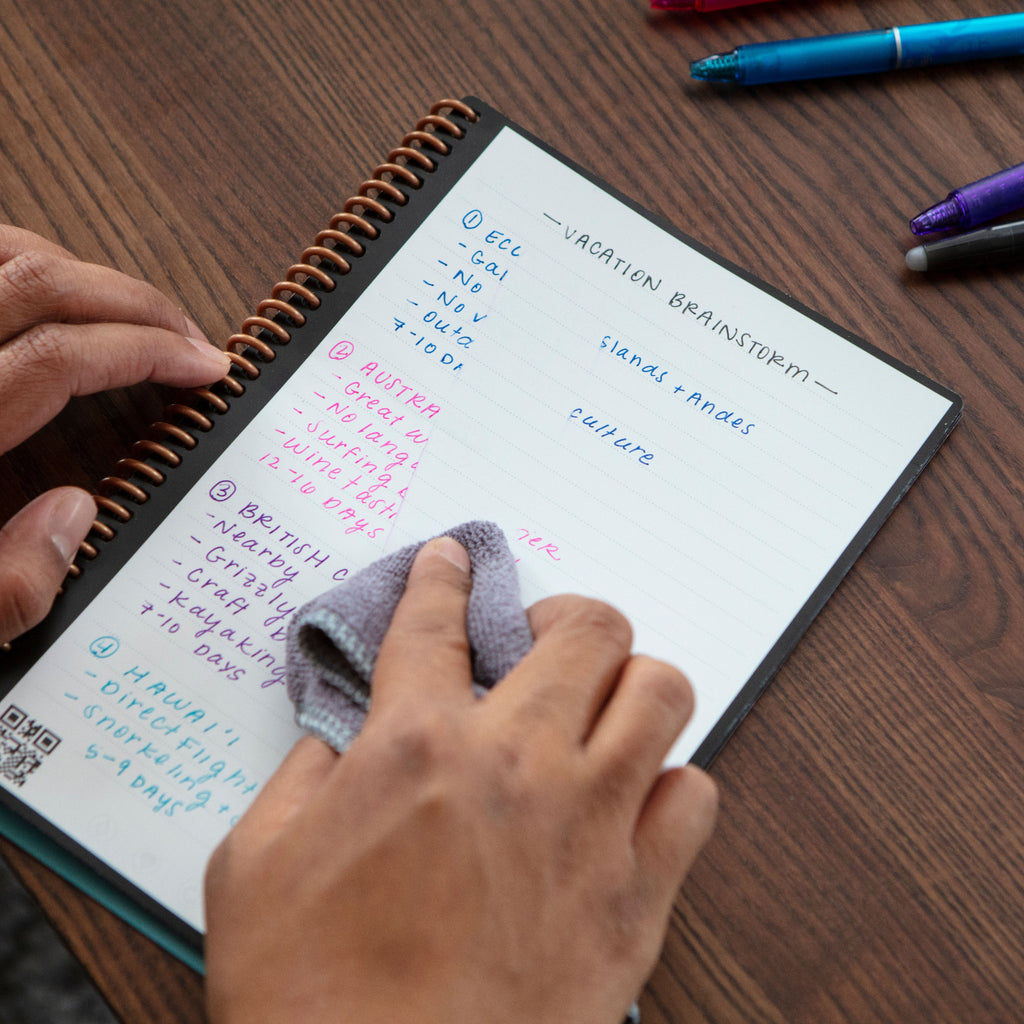 — VACATION BRAINSTORM —
① ECU
- Gal slands + Andes
- No
- No v culture
outa
7-10 DA
② AUSTRA
- Great w
- No lang
- Surfing
- wine tasti
12-16 DAYS
③ BRITISH C
- Nearby
- Grizzly
- Craft b
- Kayaking
7-10 DAYS
④ HAWAI'I
- Direct Flight
- snorkeling +
5-9 DAYS